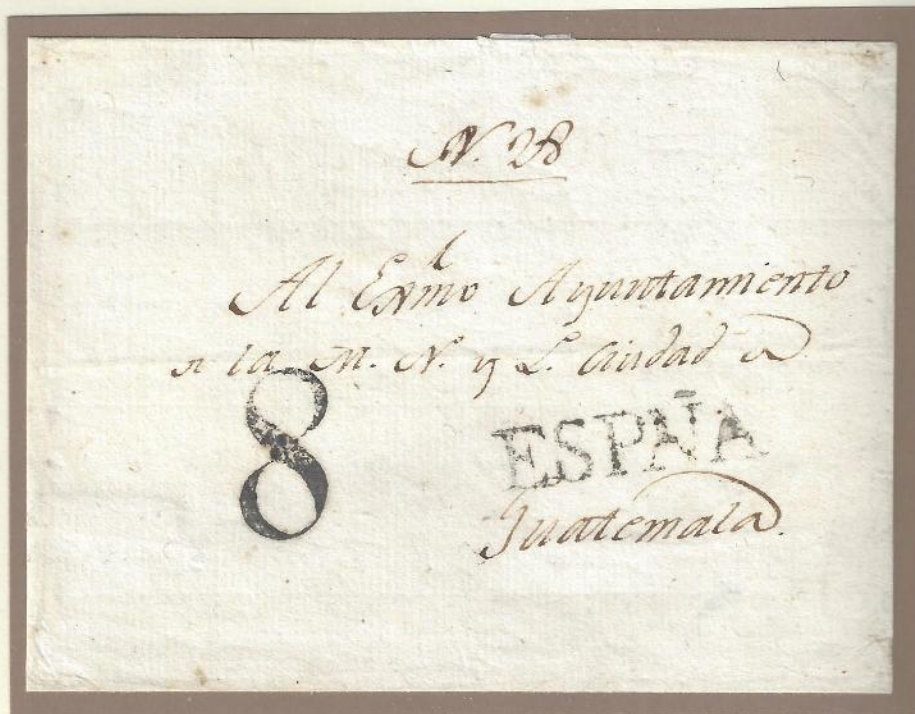 N. 28
Al Exmo Ayuntamiento
a la M. N. y L. Ciudad a
8
ESPÑA
Guatemala